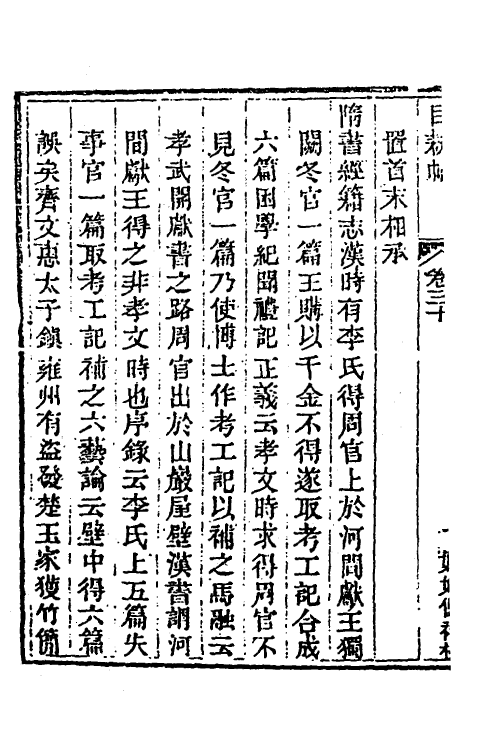 目耕帖 卷三十
置首末相承
隋書經籍志漢時有李氏得周官上於河間獻王獨
闕冬官一篇王購以千金不得遂取考工記合成
六篇困學紀聞禮記正義云孝文時求得周官不
見冬官一篇乃使博士作考工記以補之馬融云
孝武開獻書之路周官出於山巖屋壁漢書謂河
間獻王得之非孝文時也序錄云李氏上五篇失
事官一篇取考工記補之六藝論云壁中得六篇
誤矣齊文惠太子鎮雍州有盜發楚王冢獲竹簡